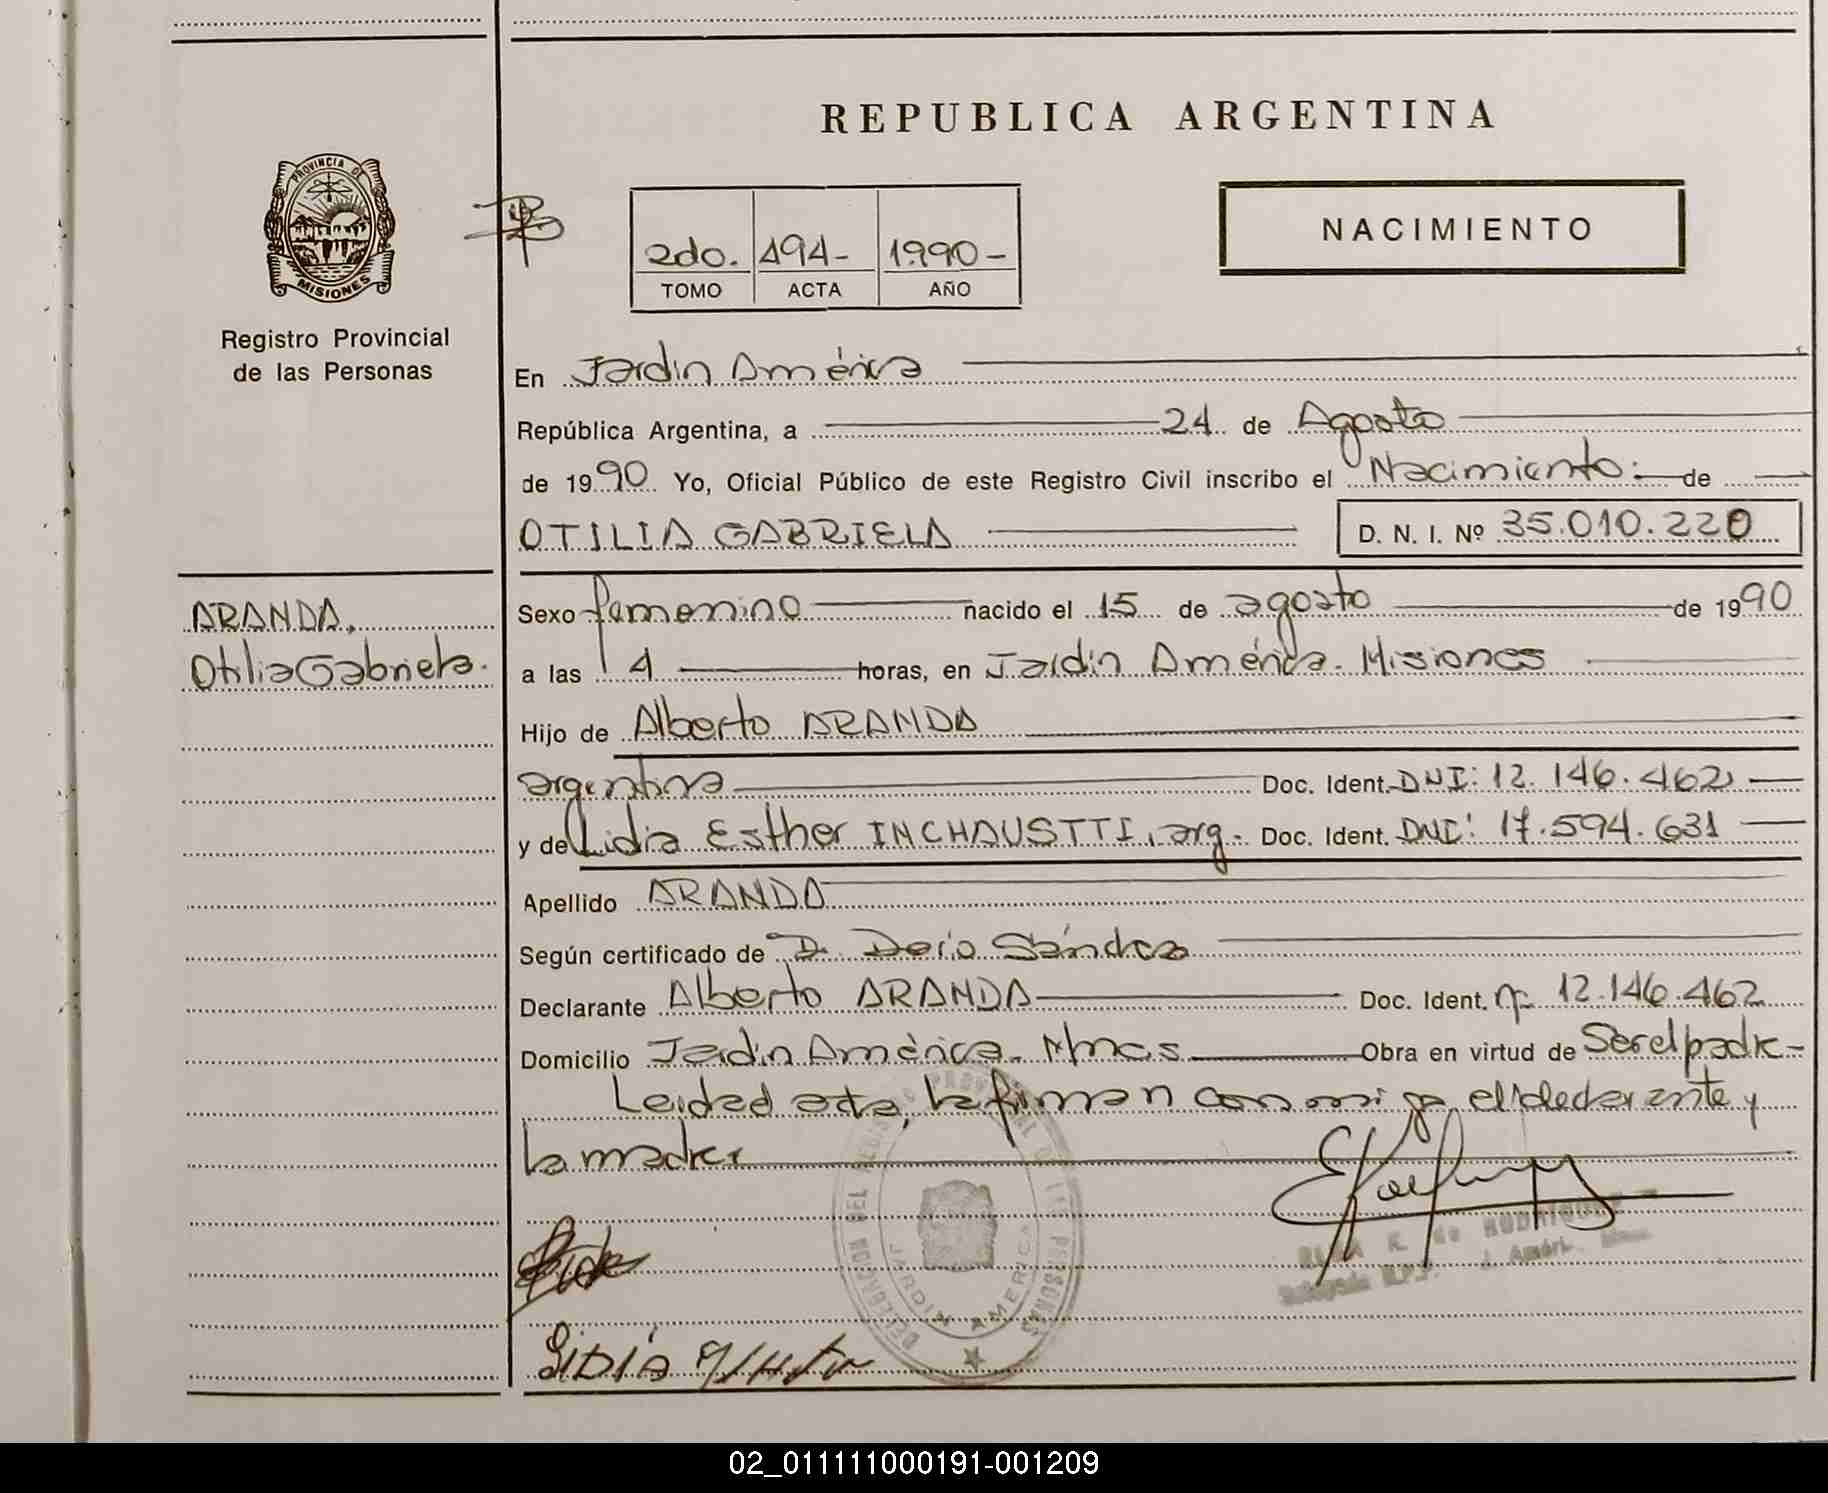 REPUBLICA ARGENTINA
PROVINCIA DE
MISIONES
Registro Provincial
de las Personas
2do. 494- 1990-
TOMO ACTA AÑO
NACIMIENTO
En Jardin América
República Argentina, a 24 de Agosto
de 1990 Yo, Oficial Público de este Registro Civil inscribo el Nacimiento: de
OTILIA GABRIELA D. N. I. Nº 35.010.220
ARANDA,
Otilia Gabriela.
Sexo femenino nacido el 15 de agosto de 1990
a las 4 horas, en Jardin América. Misiones
Hijo de Alberto ARANDA
argentina Doc. Ident. DNI: 12.146.462
y de Lidia Esther INCHAUSTTI, arg. Doc. Ident. DNI: 17.594.631
Apellido ARANDA
Según certificado de D. Dario Sánchez
Declarante Alberto ARANDA Doc. Ident. nº 12.146.462
Domicilio Jardin América. Mnes Obra en virtud de Ser el padre-
Leida el acta, la firman conmigo el declarante y
la madre
DELEGACION DEL REGISTRO PROVINCIAL DE LAS PERSONAS
JARDIN AMERICA
de RODRIGUEZ
LIDIA
02_011111000191-001209